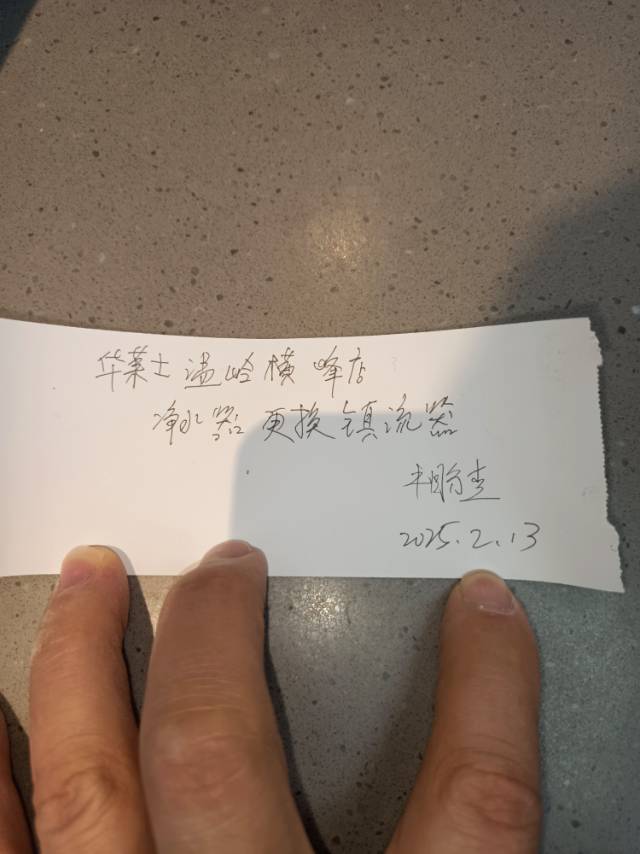 华莱士温岭横峰店
净水器更换镇流器
2025.2.13